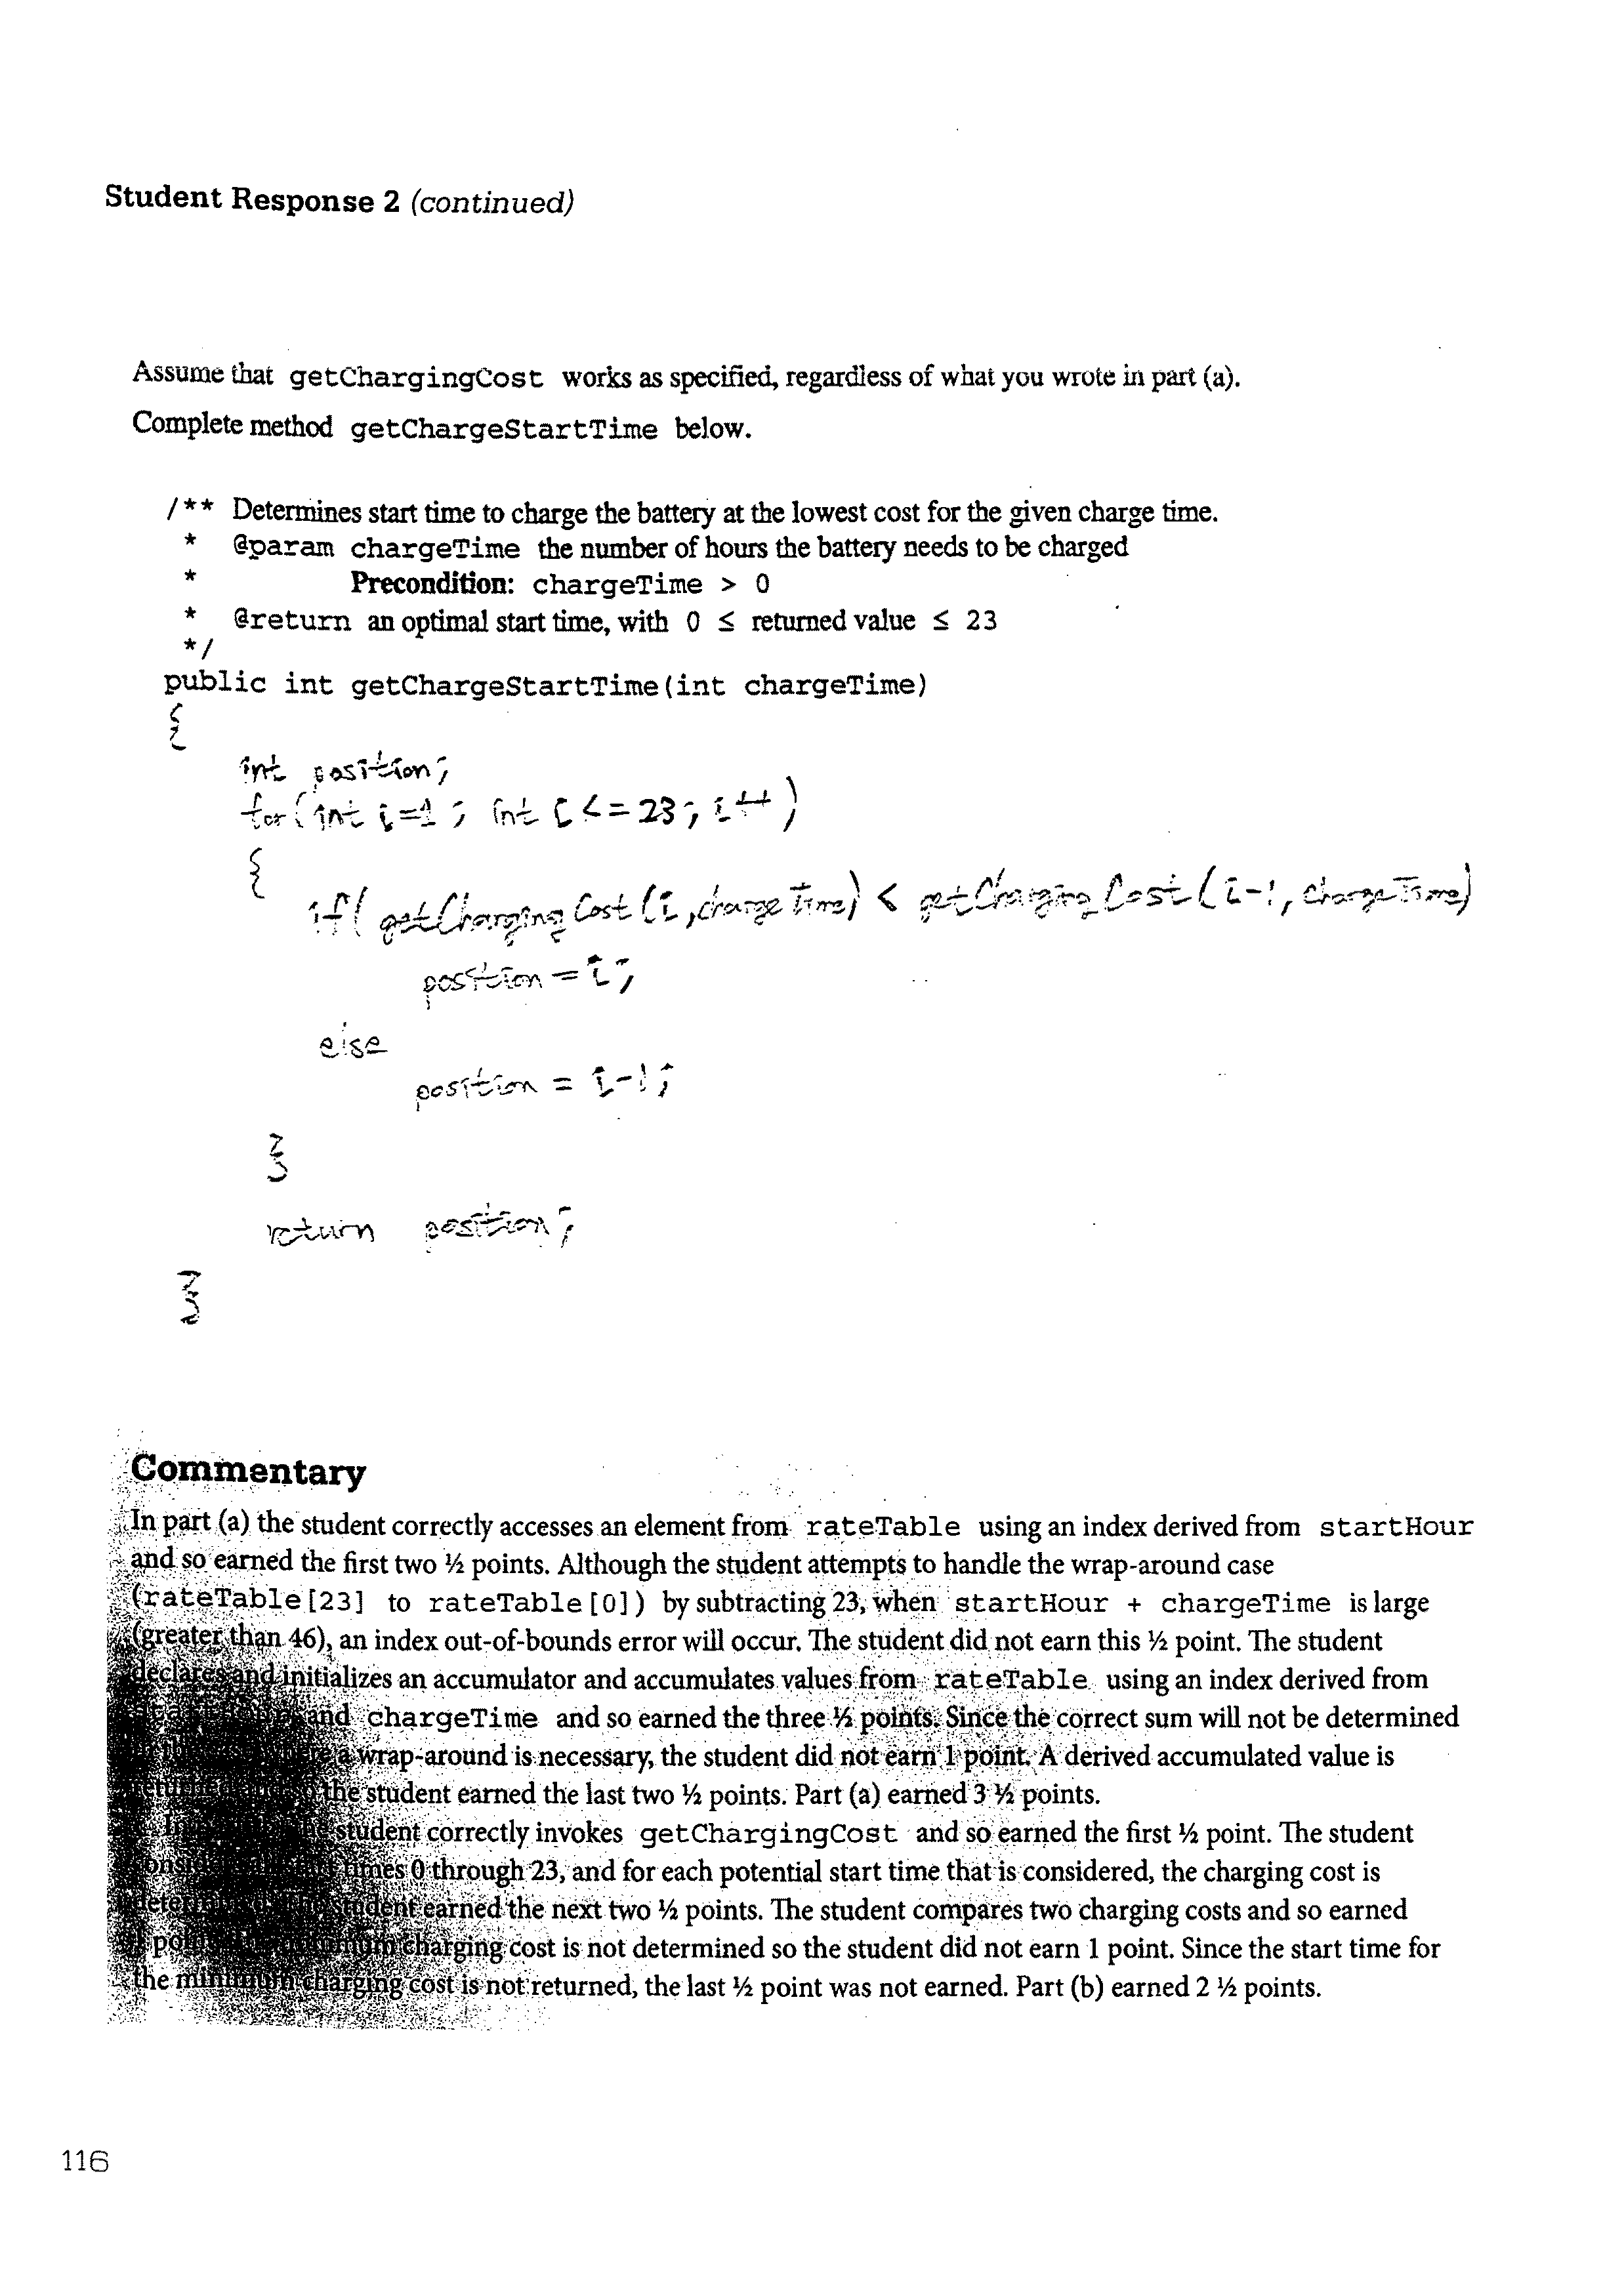 Student Response 2 (continued)
Assume that getChargingCost works as specified, regardless of what you wrote in part (a).
Complete method getChargeStartTime below.
/** Determines start time to charge the battery at the lowest cost for the given charge time.
* @param chargeTime the number of hours the battery needs to be charged
* Precondition: chargeTime > 0
* @return an optimal start time, with 0 ≤ returned value ≤ 23
*/
public int getChargeStartTime(int chargeTime)
{
int position;
for(int i=1; int i <= 23; i++)
{
if( getChargingCost(i,chargeTime) < getChargingCost(i-1, chargeTime)
position = i;
else
position = i-1;
}
return position;
}
Commentary
In part (a) the student correctly accesses an element from rateTable using an index derived from startHour
and so earned the first two ½ points. Although the student attempts to handle the wrap-around case
(rateTable[23] to rateTable[0]) by subtracting 23, when startHour + chargeTime is large
(greater than 46), an index out-of-bounds error will occur. The student did not earn this ½ point. The student
declares and initializes an accumulator and accumulates values from rateTable using an index derived from
and chargeTime and so earned the three ½ points. Since the correct sum will not be determined
a wrap-around is necessary, the student did not earn 1 point. A derived accumulated value is
the student earned the last two ½ points. Part (a) earned 3 ½ points.
student correctly invokes getChargingCost and so earned the first ½ point. The student
times 0 through 23, and for each potential start time that is considered, the charging cost is
student earned the next two ½ points. The student compares two charging costs and so earned
charging cost is not determined so the student did not earn 1 point. Since the start time for
the minimum charging cost is not returned, the last ½ point was not earned. Part (b) earned 2 ½ points.
116